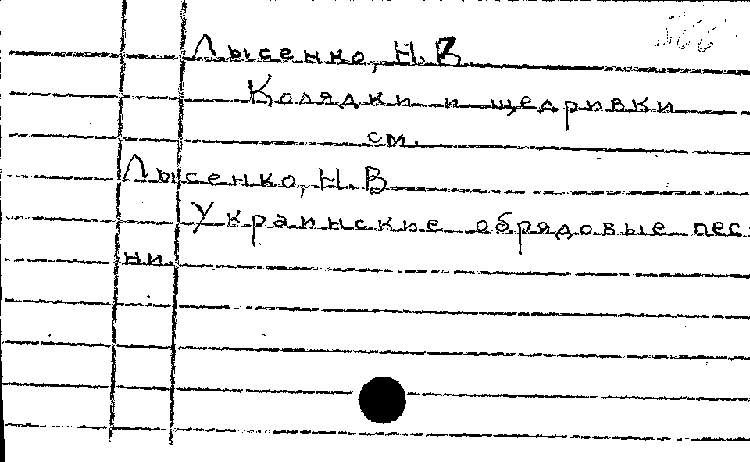 Лысенко, Н. В.
Колядки и щедривки
см.
Лысенко, Н. В
Украинские обрядовые пес-
ни.